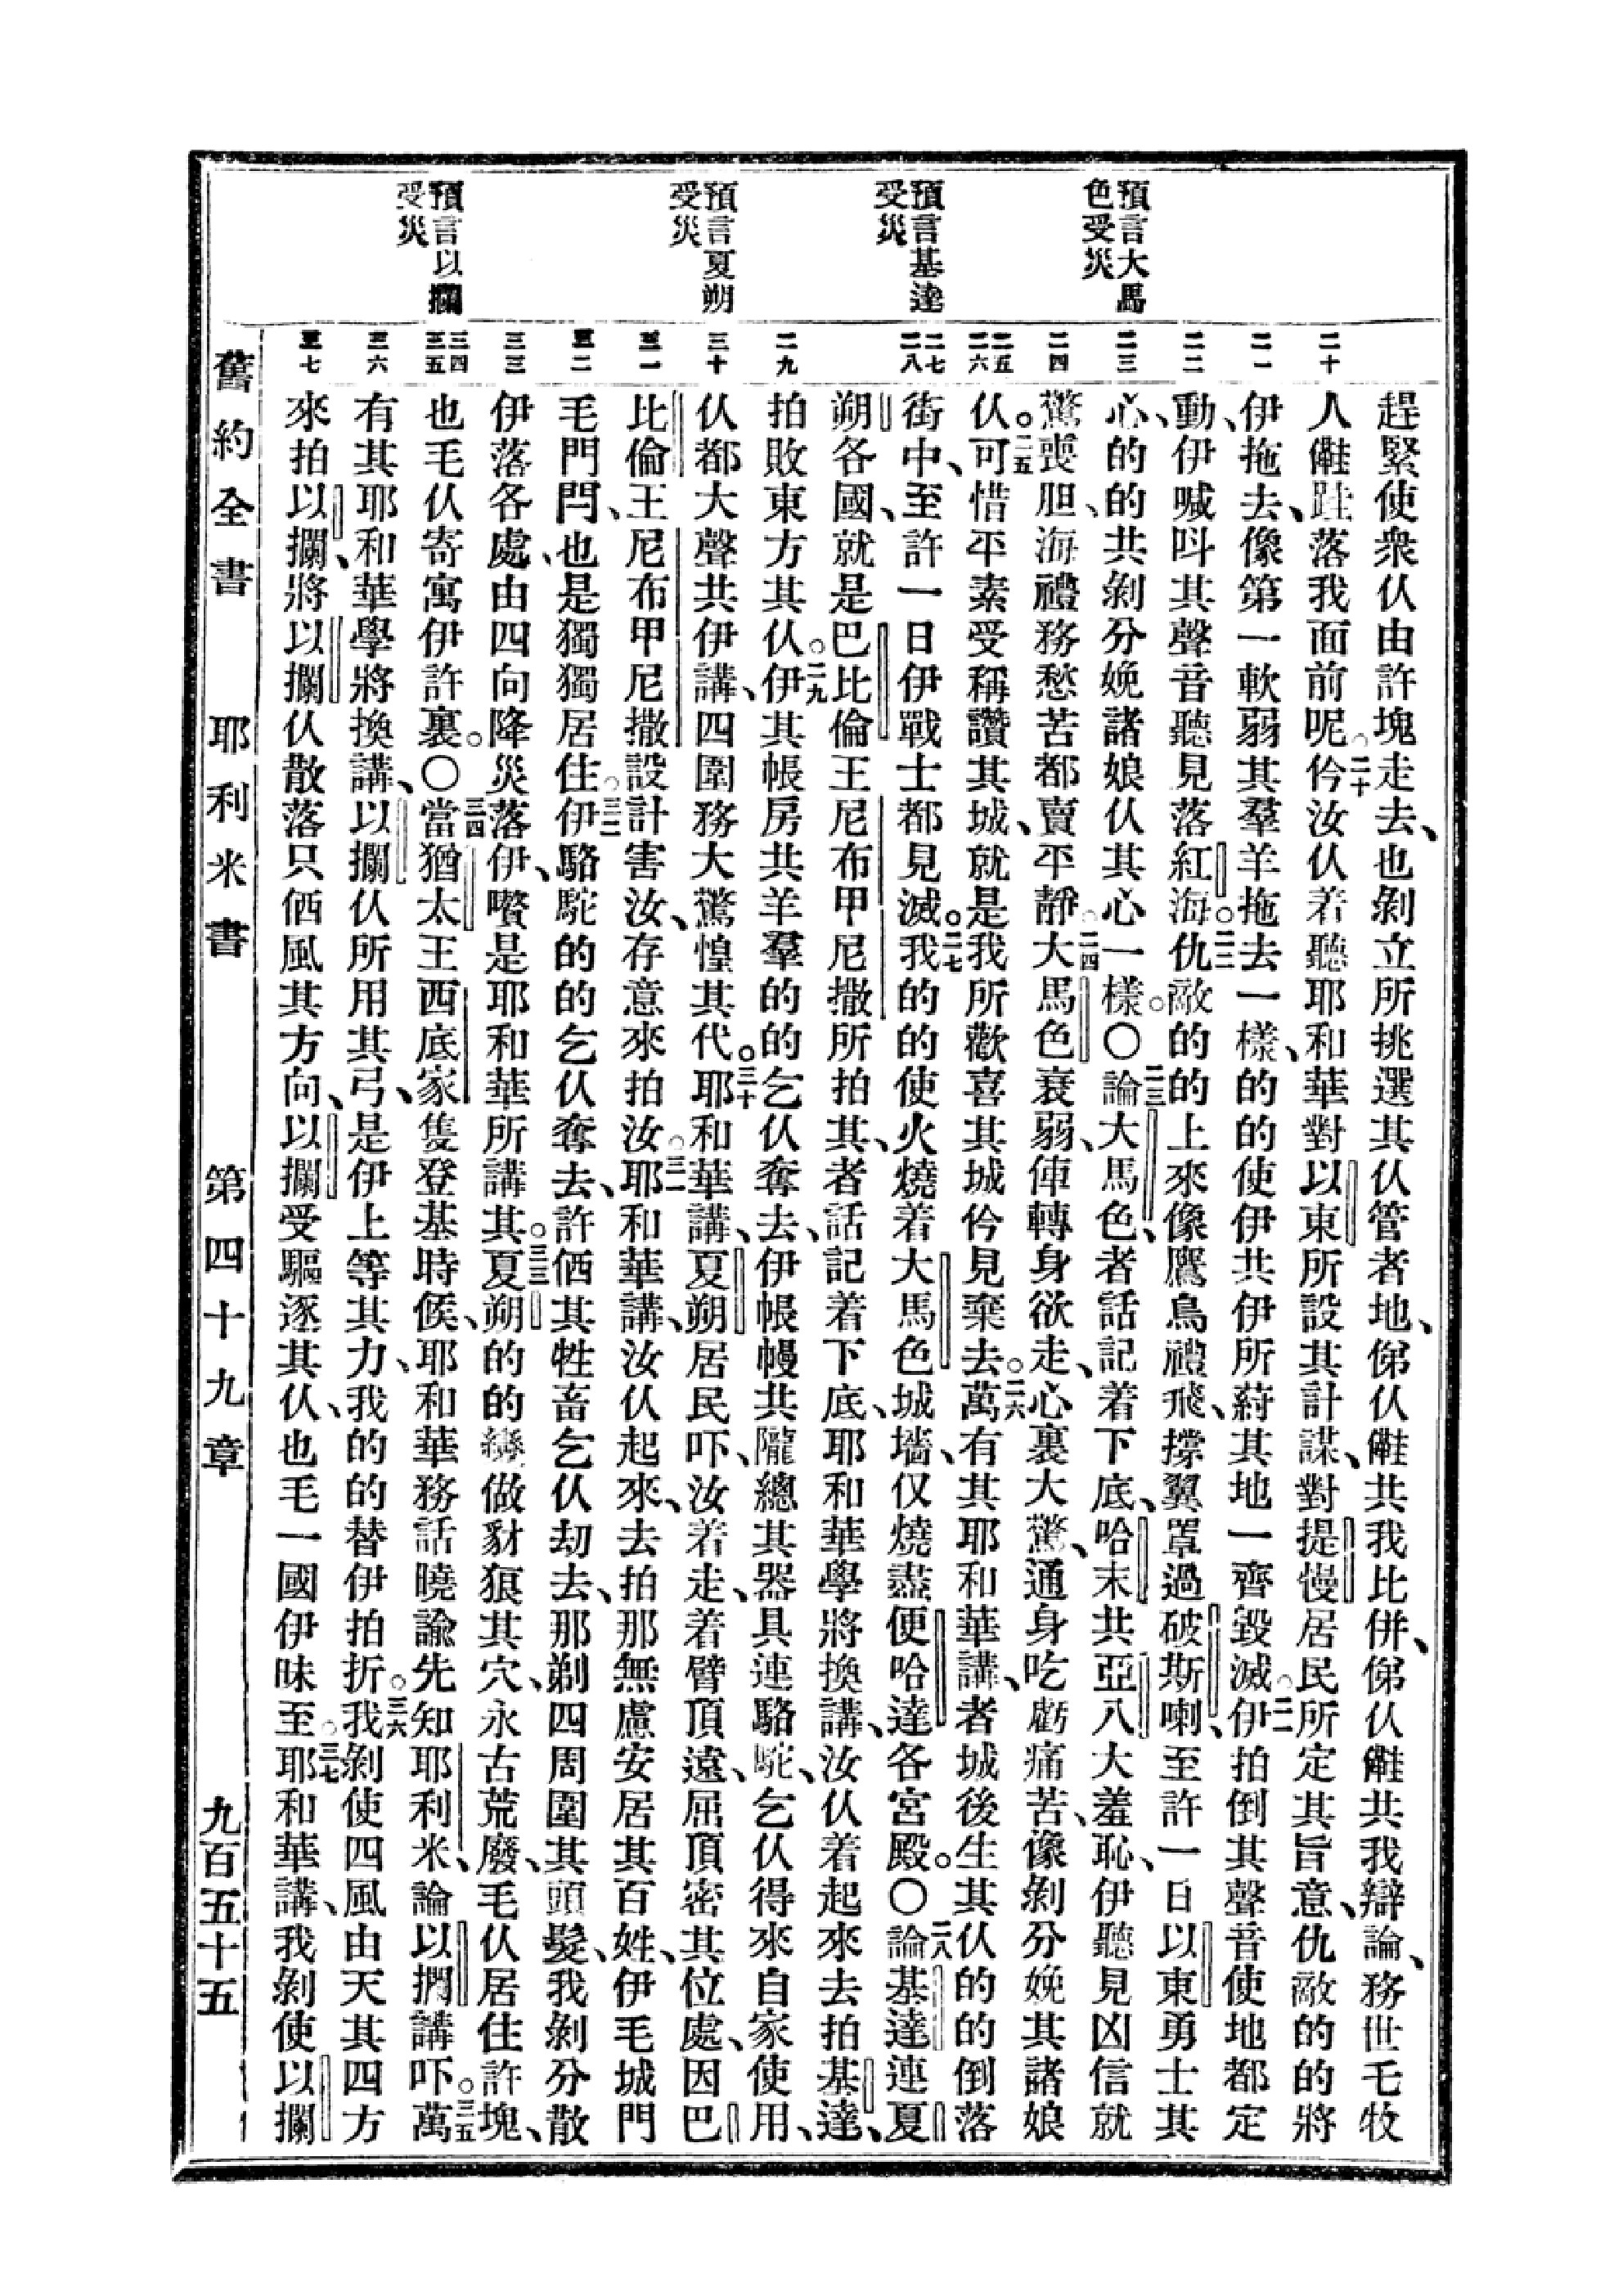 預言大馬
色受災
預言基達
受災
預言夏朔
受災
預言以攔
受災
二十
二一
二二
二三
二四
二五
二六
二七
二八
二九
三十
三一
三二
三三
三四
三五
三六
三七
趕緊使衆伩由許塊走去、也剝立所挑選其伩管者地、俤伩㒗共我比併、俤伩㒗共我辯論、務世乇牧
人㒗跬落我面前呢。二十仱汝伩着聽耶和華對以東所設其計謀、對提慢居民所定其旨意、仇敵的的將
伊拖去、像第一軟弱其羣羊拖去一樣、的的使伊共伊所葤其地一齊毀滅。二一伊拍倒其聲音使地都定
動、伊喊呌其聲音聽見落紅海。二二仇敵的的上來像鷹鳥禮飛、撐翼罩過破斯喇、至許一日以東勇士其
心、的的共剝分娩諸娘伩其心一樣。〇二三論大馬色、者話記着下底、哈末共亞八大羞恥、伊聽見凶信就
驚喪胆、海禮務愁苦都賣平靜。二四大馬色衰弱、俥轉身欲走、心裏大驚、通身吃虧痛苦、像剝分娩其諸娘
伩。二五可惜平素受稱讚其城、就是我所歡喜其城仱見棄去。二六萬有其耶和華講、者城後生其伩的的倒落
街中、至許一日伊戰士都見滅。二七我的的使火燒着大馬色城墻、仅燒盡便哈達各宮殿。〇二八論基達連夏
朔各國、就是巴比倫王尼布甲尼撒所拍其、者話記着下底、耶和華學將換講、汝伩着起來去拍基達、
拍敗東方其伩。二九伊其帳房共羊羣的的乞伩奪去、伊帳幔共隴總其器具連駱駝、乞伩得來自家使用、
伩都大聲共伊講、四圍務大驚惶其代。三十耶和華講、夏朔居民吓、汝着走、着躄頂遠、屈頂密其位處、因巴
比倫王尼布甲尼撒設計害汝、存意來拍汝。三一耶和華講、汝伩起來、去拍那無慮安居其百姓、伊乇城門
乇門閂、也是獨獨居住。三二伊駱駝的的乞伩奪去、許俩其牲畜乞伩刧去、那剃四周圍其頭髮、我剝分散
伊落各處、由四向降災落伊、嚽是耶和華所講其。三三夏朔的的變做豺狼其穴、永古荒廢、乇伩居住許塊、
也乇伩寄寓伊許裏。〇三四當猶太王西底家隻登基時候、耶和華務話曉諭先知耶利米、論以攔講吓。三五萬
有其耶和華學將換講、以攔伩所用其弓、是伊上等其力、我的的替伊拍折。三六我剝使四風由天其四方
來拍以攔、將以攔伩散落只俩風其方向、以攔受驅逐其伩、也乇一國伊昧至。三七耶和華講、我剝使以攔
舊約全書 耶利米書 第四十九章 九百五十五